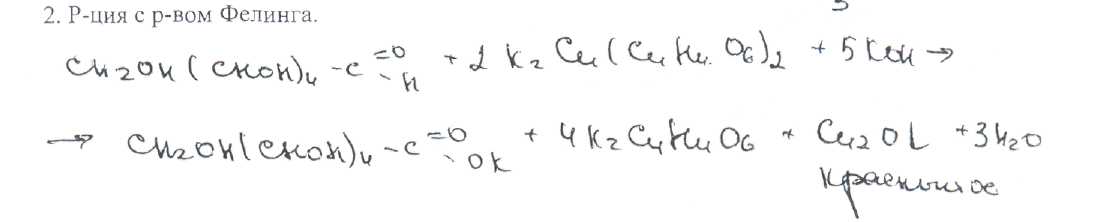 2. Р-ция с р-вом Фелинга.
CH2OH(CHOH)4 -C =O -H + 2 K2 Cu(C4H4 O6)2 + 5 KOH →
→ CH2OH(CHOH)4 -C =O -OK + 4 K2C4H4O6 + Cu2O↓ + 3 H2O
красный